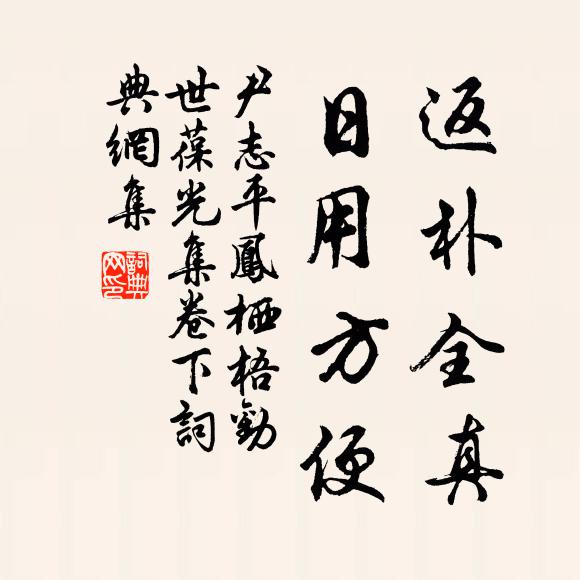 返朴全真
日用方便
尹志平鳳栖梧勸
世葆光集卷下詞
典網集
詞典網印